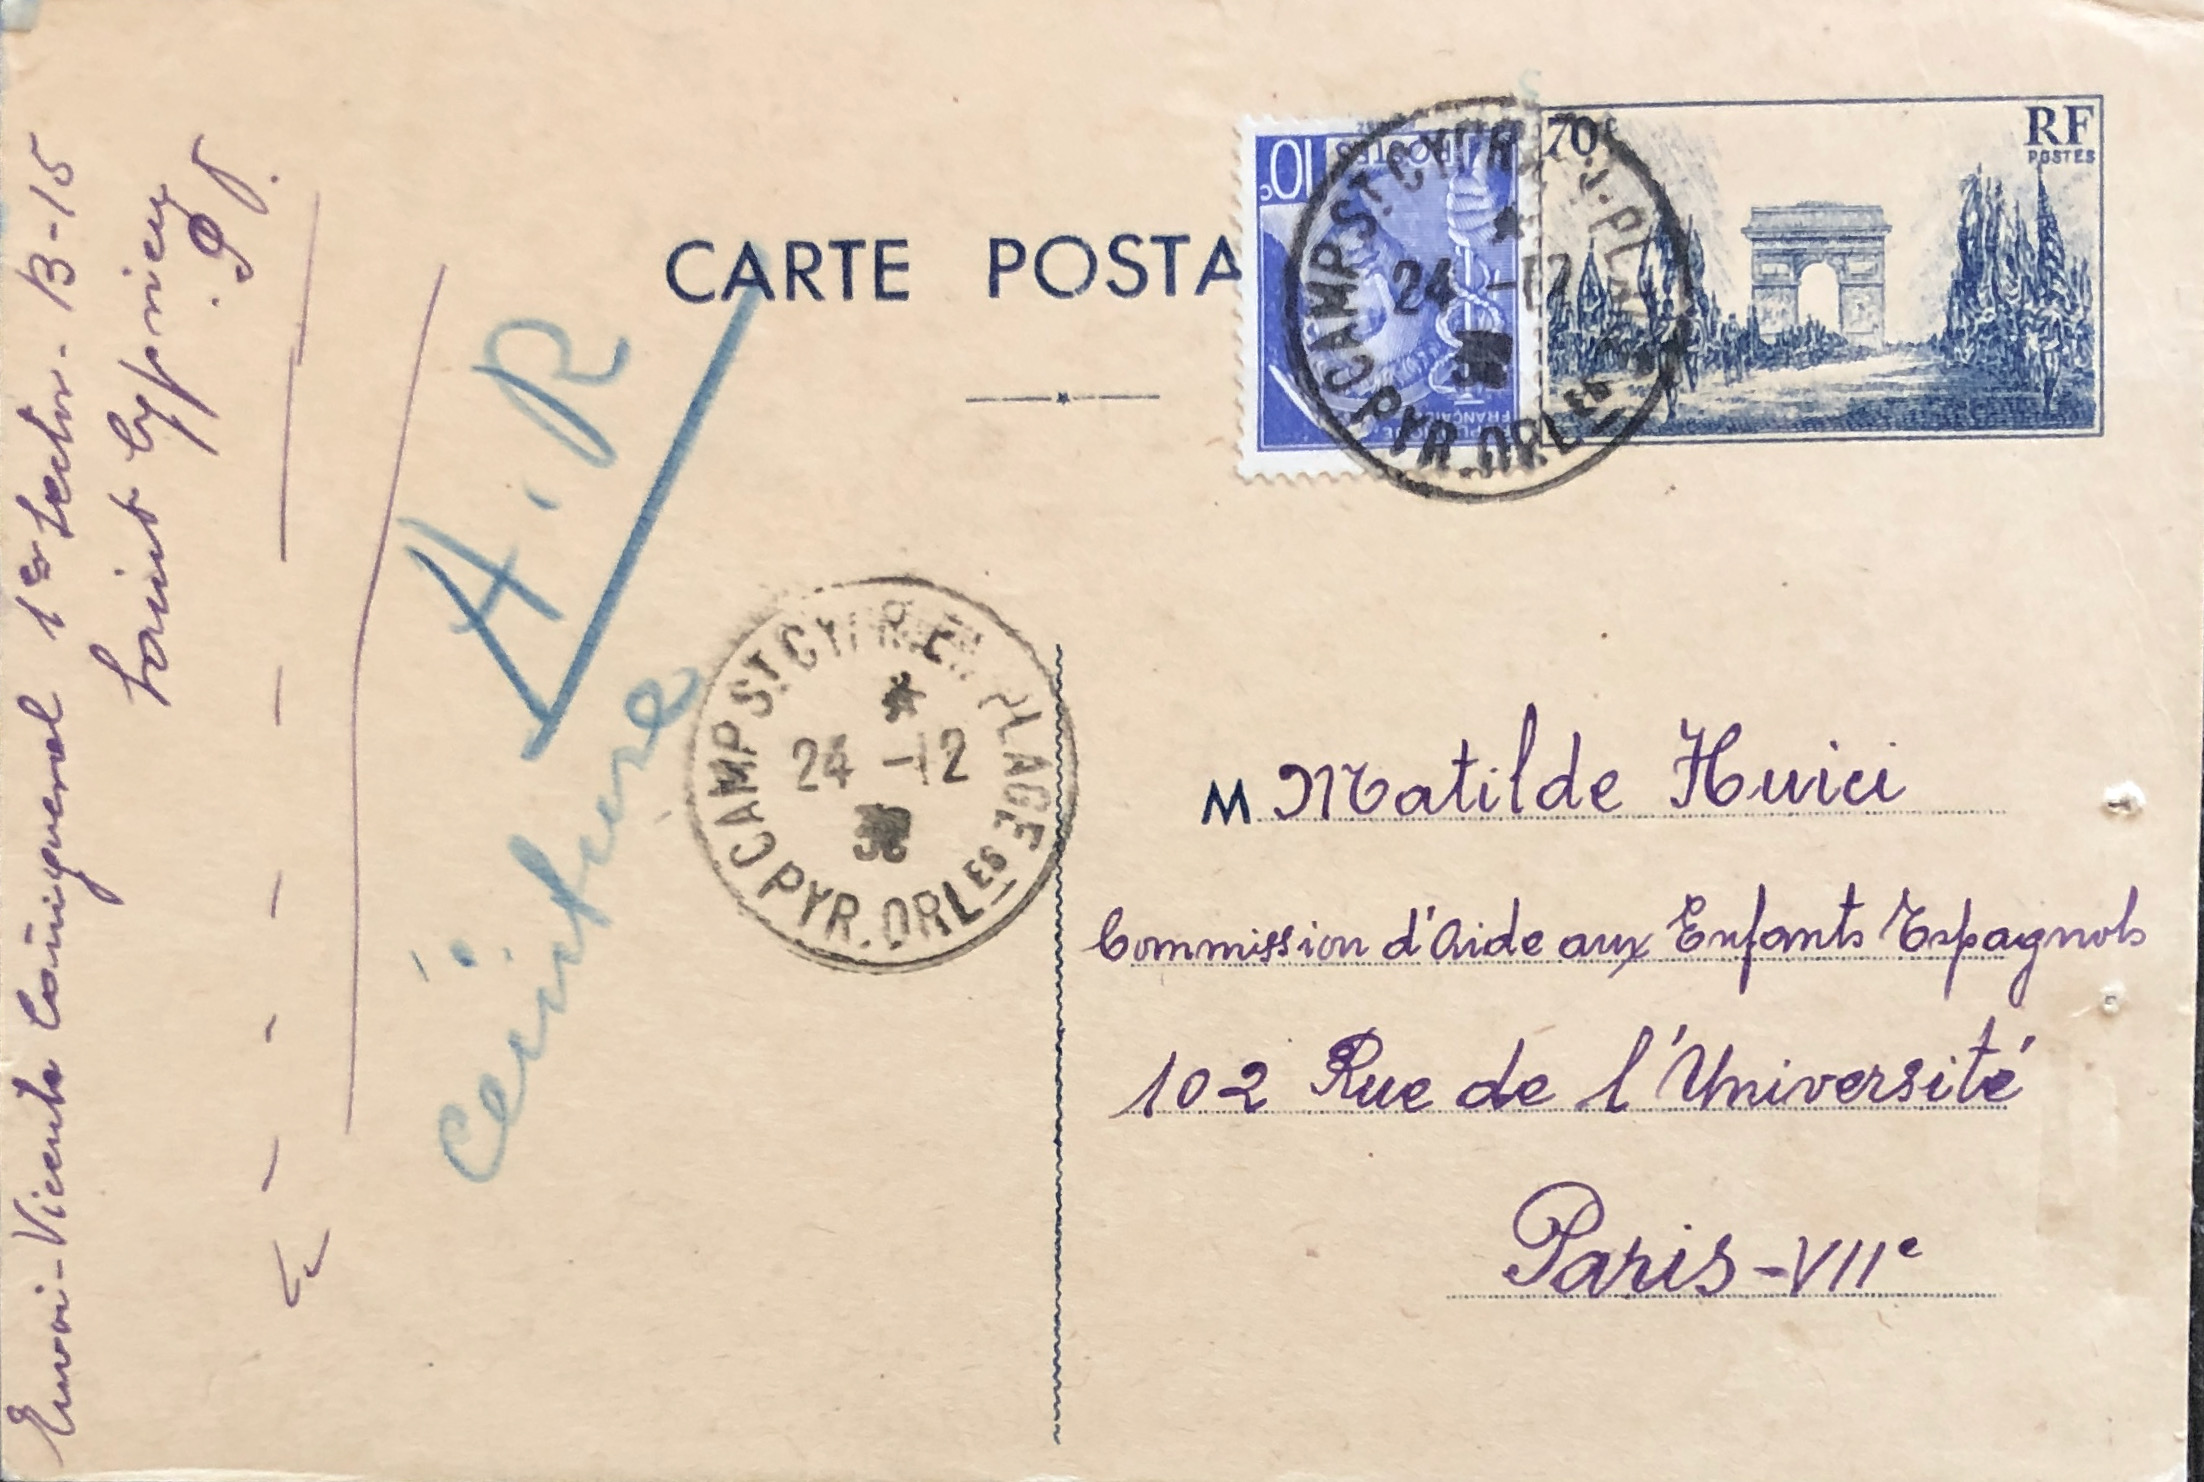 Envoi - Vicente 1er Secteur - B-15
Saint Cyprien
P. O.
CARTE POSTA
10c
POSTES
FRANÇAISE
70c
RF
POSTES
CAMP ST CYPRIEN PLAGE
24 -12
PYR. ORLES
A.R
Ceinture
CAMP ST CYPRIEN PLAGE
24 -12
38
PYR. ORLES
M Matilde Huici
Commission d'Aide aux Enfants Espagnols
102 Rue de l'Université
Paris-VIIe